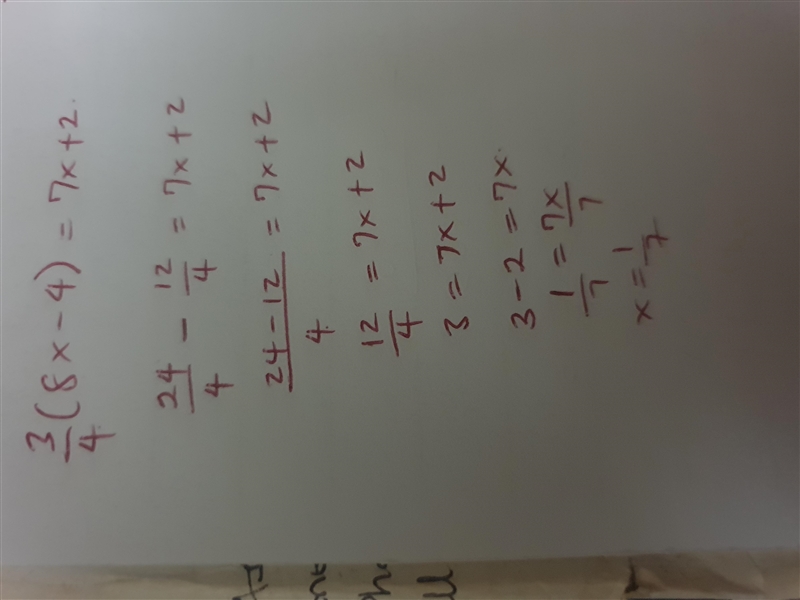 3/4 (8x - 4) = 7x + 2.
24/4 - 12/4 = 7x + 2
(24 - 12)/4 = 7x + 2
12/4 = 7x + 2
3 = 7x + 2
3 - 2 = 7x.
1/7 = 7x/7
x = 1/7